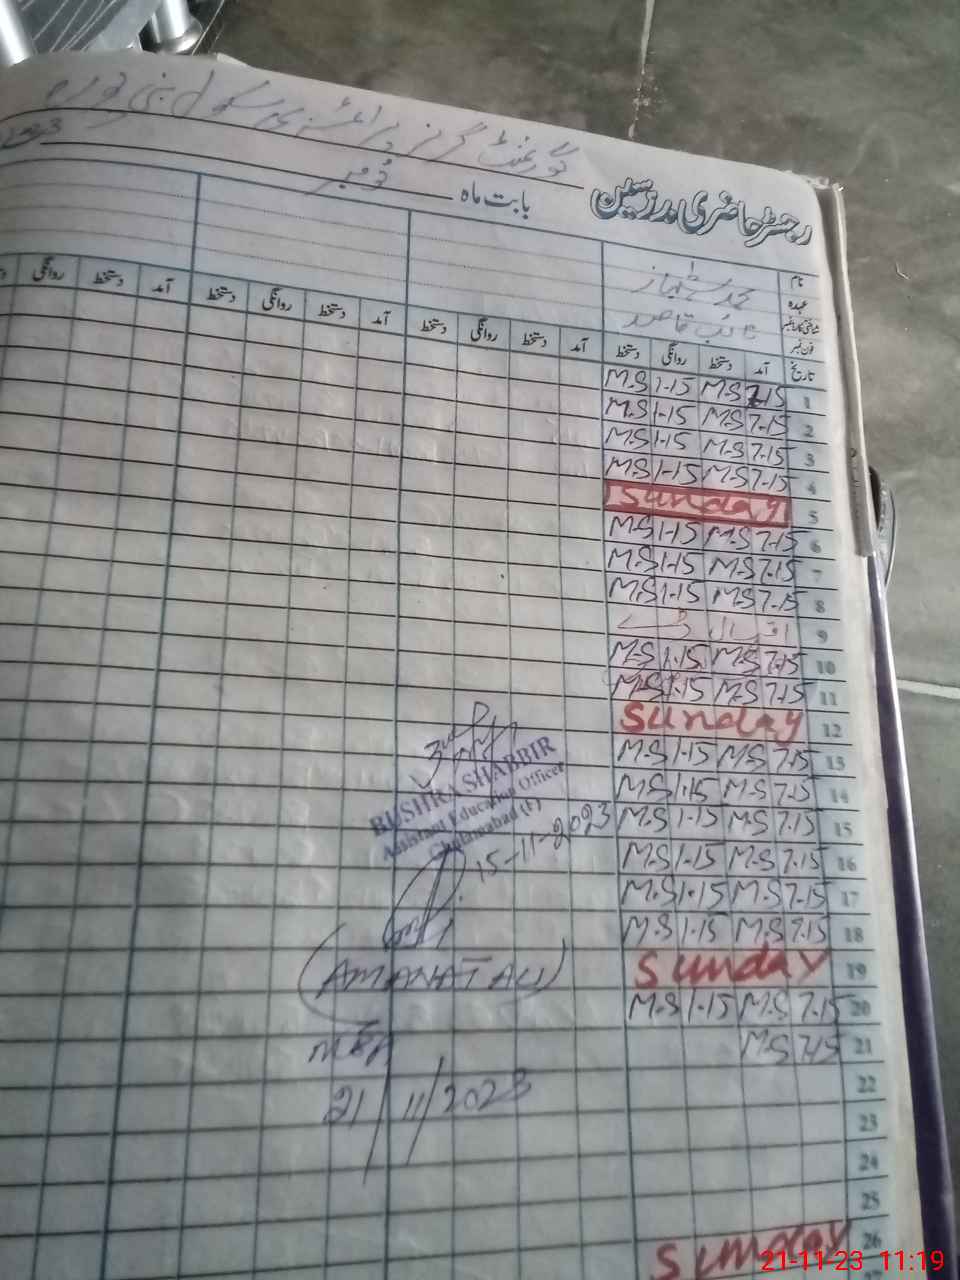 گورنمنٹ گرلز پرائمری سکول
رجسٹر حاضری مدرسین بابت ماہ نومبر
نام
محمد شہباز
عہدہ
نائب قاصد
شناختی کارڈ نمبر
فون نمبر
تاریخ آمد دستخط روانگی دستخط آمد دستخط روانگی دستخط آمد دستخط روانگی دستخط آمد دستخط روانگی
1 7.15 M.S 1-15 M.S
2 7.15 M.S 1-15 M.S
3 7.15 M.S 1-15 M.S
4 7.15 M.S 1-15 M.S
5 Sunday
6 7.15 M.S 1-15 M.S
7 7.15 M.S 1-15 M.S
8 7.15 M.S 1-15 M.S
9 اقبال ڈے
10 7.15 M.S 1.15 M.S
11 7.15 M.S 1.15 M.S
12 Sunday
13 7.15 M.S 1-15 M.S
14 7.15 M.S 1.15 M.S
15 7.15 M.S 1-15 M.S
16 7.15 M.S 1-15 M.S
17 7.15 M.S 1.15 M.S
18 7.15 M.S 1.15 M.S
19 Sunday
20 7.15 M.S 1-15 M.S
21 7.15 M.S
22
23
24
25
26 Sunday
BUSHRA SHABBIR
Assistant Education Officer
Ghulamabad (F)
15-11-2023
(AMANAT ALI)
MEA
21/11/2023
21-11-23 11:19